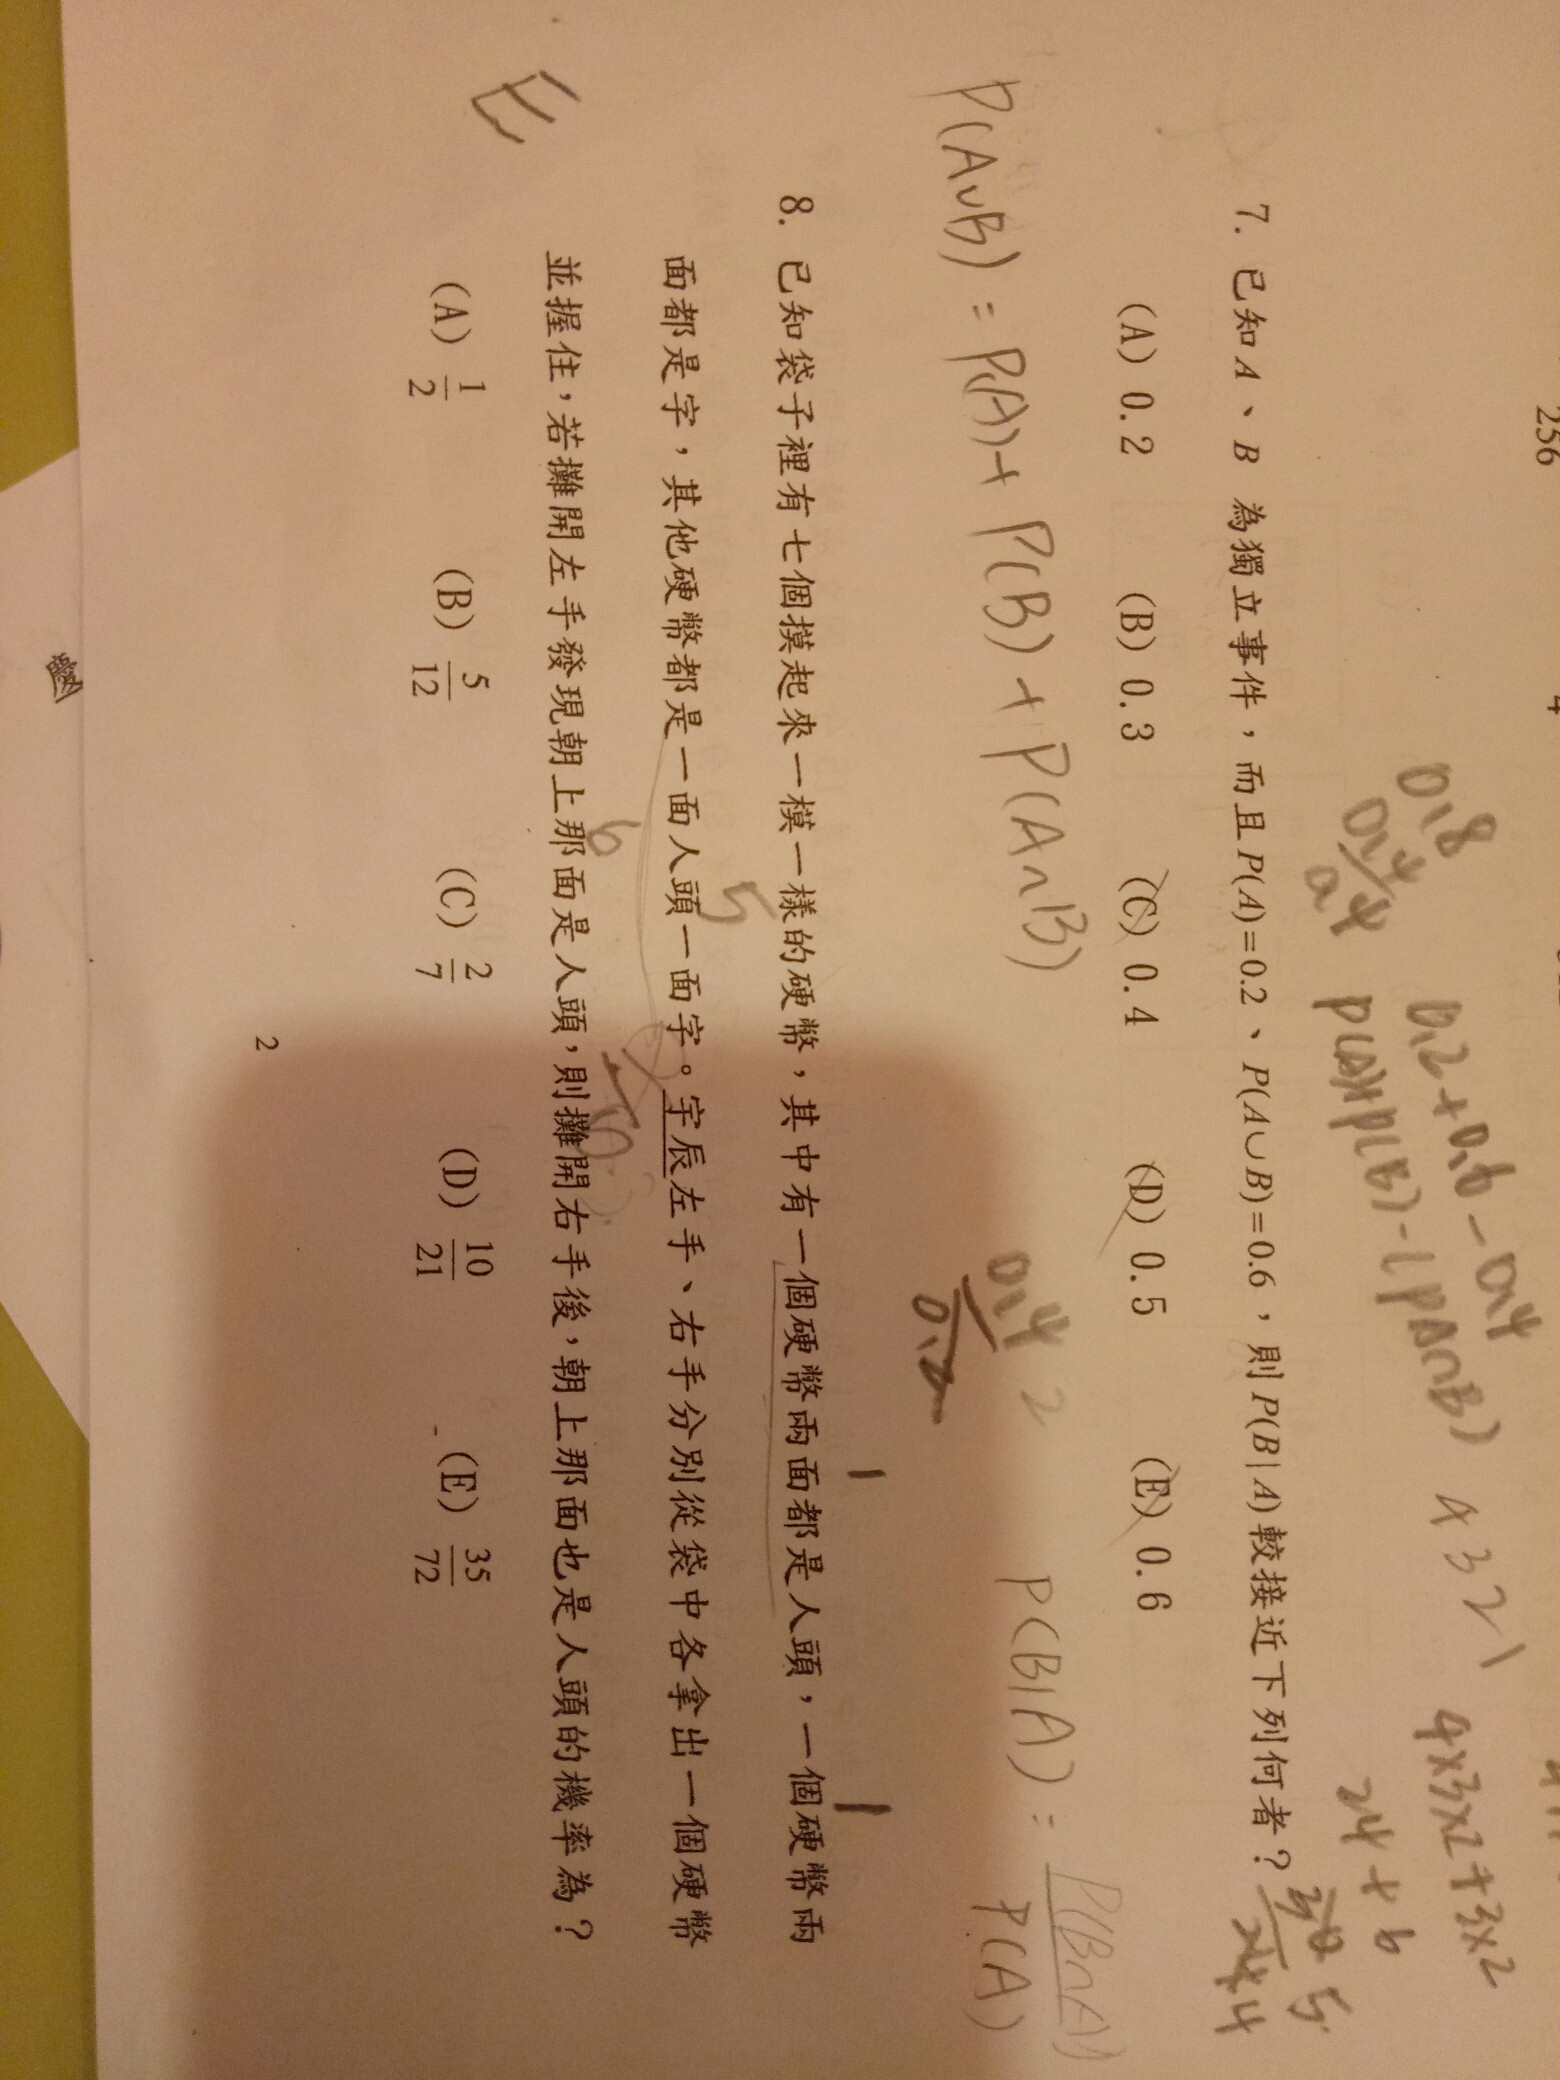 256
4
0.8
0.4
0.2+0.6-0.4
P(A)+P(B)-(P(A∩B)
4 3 2 1
4×3×2+3×2
24+6
7. 已知A、B 為獨立事件,而且P(A)=0.2、P(A∪B)=0.6,則P(B|A)較接近下列何者?
(A) 0.2 (B) 0.3 (C) 0.4 (D) 0.5 (E) 0.6
P(A∪B) = P(A)+ P(B) + P(A∩B)
0.4 2
0.2
P(B|A) = P(B∩A)
P(A)
1 1
8. 已知袋子裡有七個摸起來一模一樣的硬幣,其中有一個硬幣兩面都是人頭,一個硬幣兩
5
面都是字,其他硬幣都是一面人頭一面字。宇辰左手、右手分別從袋中各拿出一個硬幣
6
並握住,若攤開左手發現朝上那面是人頭,則攤開右手後,朝上那面也是人頭的機率為?
(A) 1/2 (B) 5/12 (C) 2/7 (D) 10/21 (E) 35/72
2